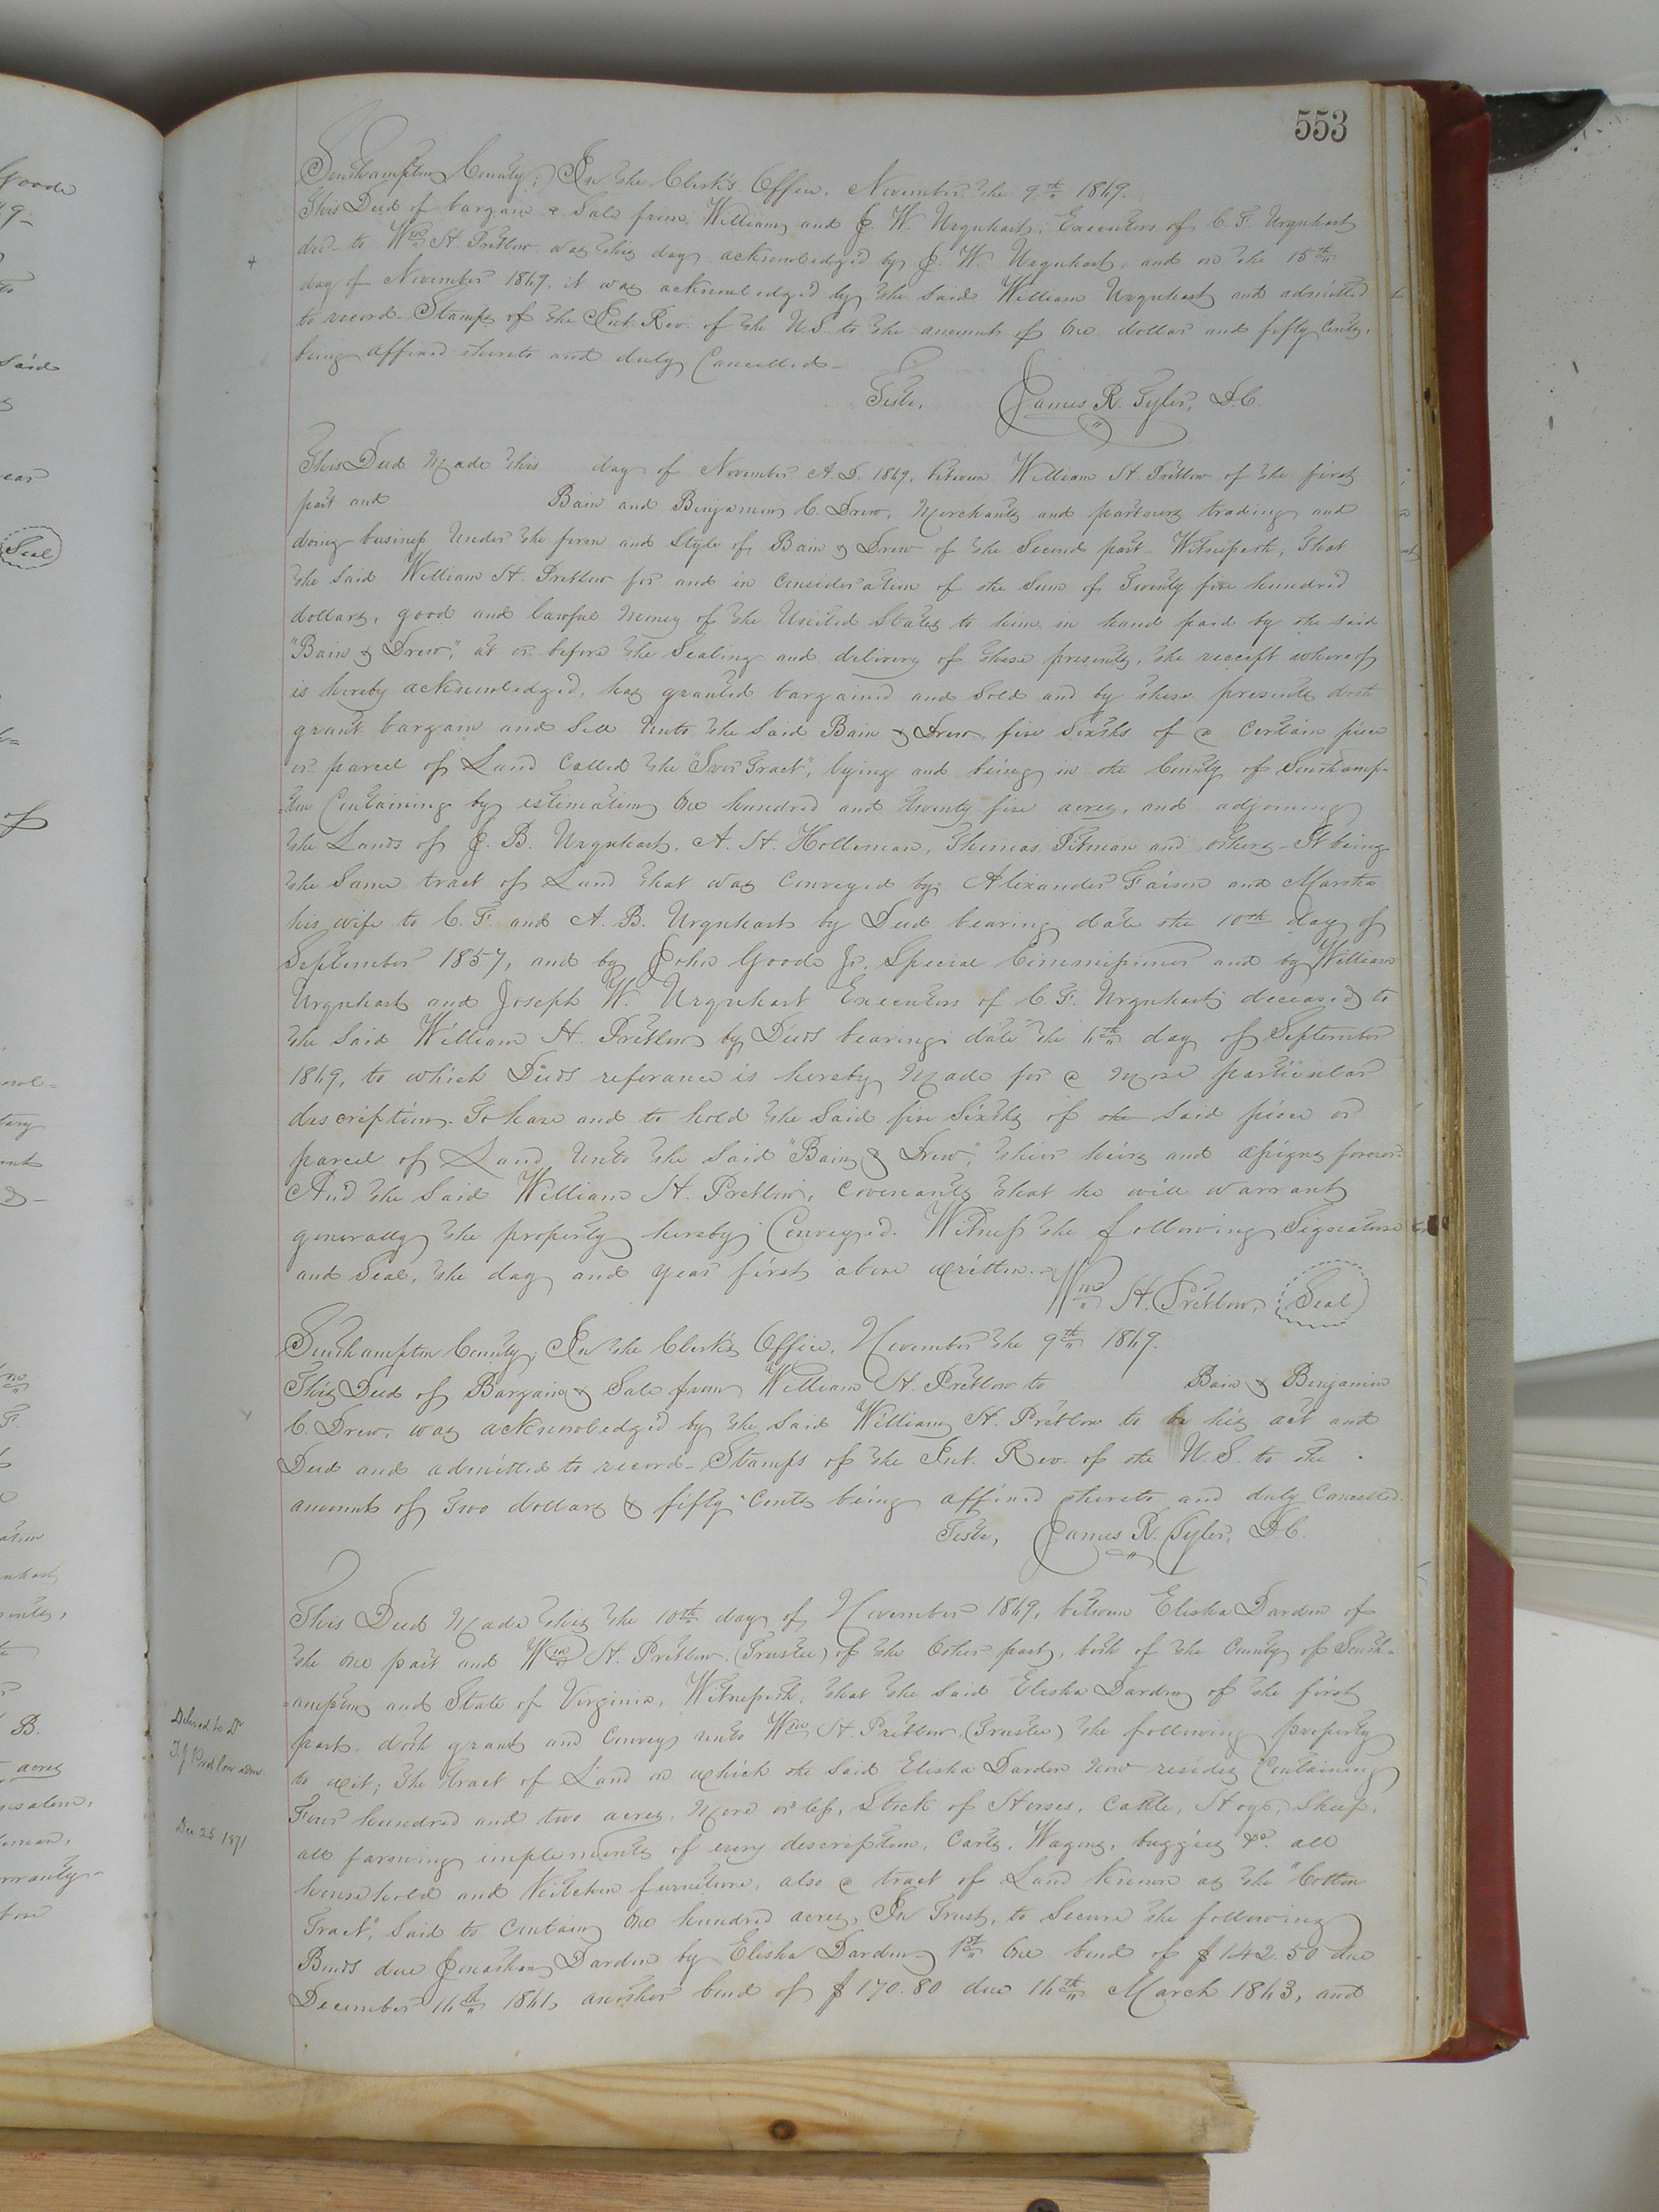 553
Southampton County; In the Clerk's Office, November the 9th 1869.
This Deed of bargain & Sale from William and J. W. Urquhart, Executors of C. F. Urquhart
decd. to Wm H. Pretlow was this day acknowledged by J. W. Urquhart, and on the 15th
day of November 1869, it was acknowledged by the said William Urquhart and admitted
to record. Stamps of the Int. Rev. of the U.S. to the amount of One dollar and fifty cents,
being affixed thereto and duly Cancelled.
Teste, James R. Tyler, D.C.
This Deed Made this day of November A.D. 1869, between William H. Pretlow of the first
part and Bain and Benjamin C. Drew, Merchants and partners trading and
doing business Under the firm and Style of Bain & Drew of the Second part Witnesseth, That
the said William H. Pretlow for and in consideration of the Sum of Twenty five hundred
dollars, good and lawful money of the United States to him in hand paid by the said
"Bain & Drew", at or before the Sealing and delivery of these presents, the receipt whereof
is hereby acknowledged, has granted bargained and Sold and by these presents doth
grant bargain and Sell Unto the Said Bain & Drew five Sixths of a Certain piece
or parcel of Land Called the "Ivor Tract", lying and being in the County of Southamp-
-ton Containing by estimation One hundred and twenty five acres, and adjoining
the Lands of J. B. Urquhart, A. H. Holleman, Thomas Pitman and others - It being
the Same tract of Land that was Conveyed by Alexander Faison and Martha
his wife to C. F. and A. B. Urquhart by Deed bearing date the 10th day of
September 1857, and by John Goode Jr. Special Commissioner and by William
Urquhart and Joseph W. Urquhart Executors of C. F. Urquhart deceased to
the Said William H. Pretlow by Deeds bearing date the 6th day of September
1869, to which Deeds referance is hereby Made for a More particular
description. To have and to hold the Said five Sixths of the Said piece or
parcel of Land Unto the Said "Bain & Drew", their heirs and assigns forever.
And the Said William H. Pretlow, Covenants that he will warrant
generally the property hereby Conveyed. Witness the following Signature
and Seal, the day and year first above written.
Wm H. Pretlow, Seal
Southampton County; In the Clerk's Office, November the 9th 1869.
This Deed of Bargain & Sale from William H. Pretlow to Bain & Benjamin
C. Drew, was acknowledged by the Said William H. Pretlow to be his act and
Deed and admitted to record - Stamps of the Int. Rev. of the U.S. to the
amount of Two dollars & fifty Cents being affixed thereto and duly Cancelled.
Teste, James R. Tyler, D.C.
This Deed Made this the 10th day of November 1869, between Elisha Darden of
the One part and Wm H. Pretlow (Trustee) of the Other part, both of the County of South-
-ampton and State of Virginia, Witnesseth, that the Said Elisha Darden of the first
part, doth grant and Convey unto Wm H. Pretlow (Trustee) the following property
to wit; the tract of Land on which the Said Elisha Darden Now resides Containing
Four hundred and two acres, More or less, Stock of Horses, Cattle, Hogs, Sheep,
all farming implements of every description, Carts, Wagons, buggies &c. all
household and Kitchen furniture, also a tract of Land Known as the "Cotton
Tract," Said to Contain One hundred acres, In Trust, to Secure the following
Bonds due Jonathan Darden by Elisha Darden 1st One bond of $142.50 due
December 16th 1861, another bond of $170.80 due 16th March 1863, and
Delivered to Dr
Dec 25 1871
Goode
Said
Seal
of
B.
acres